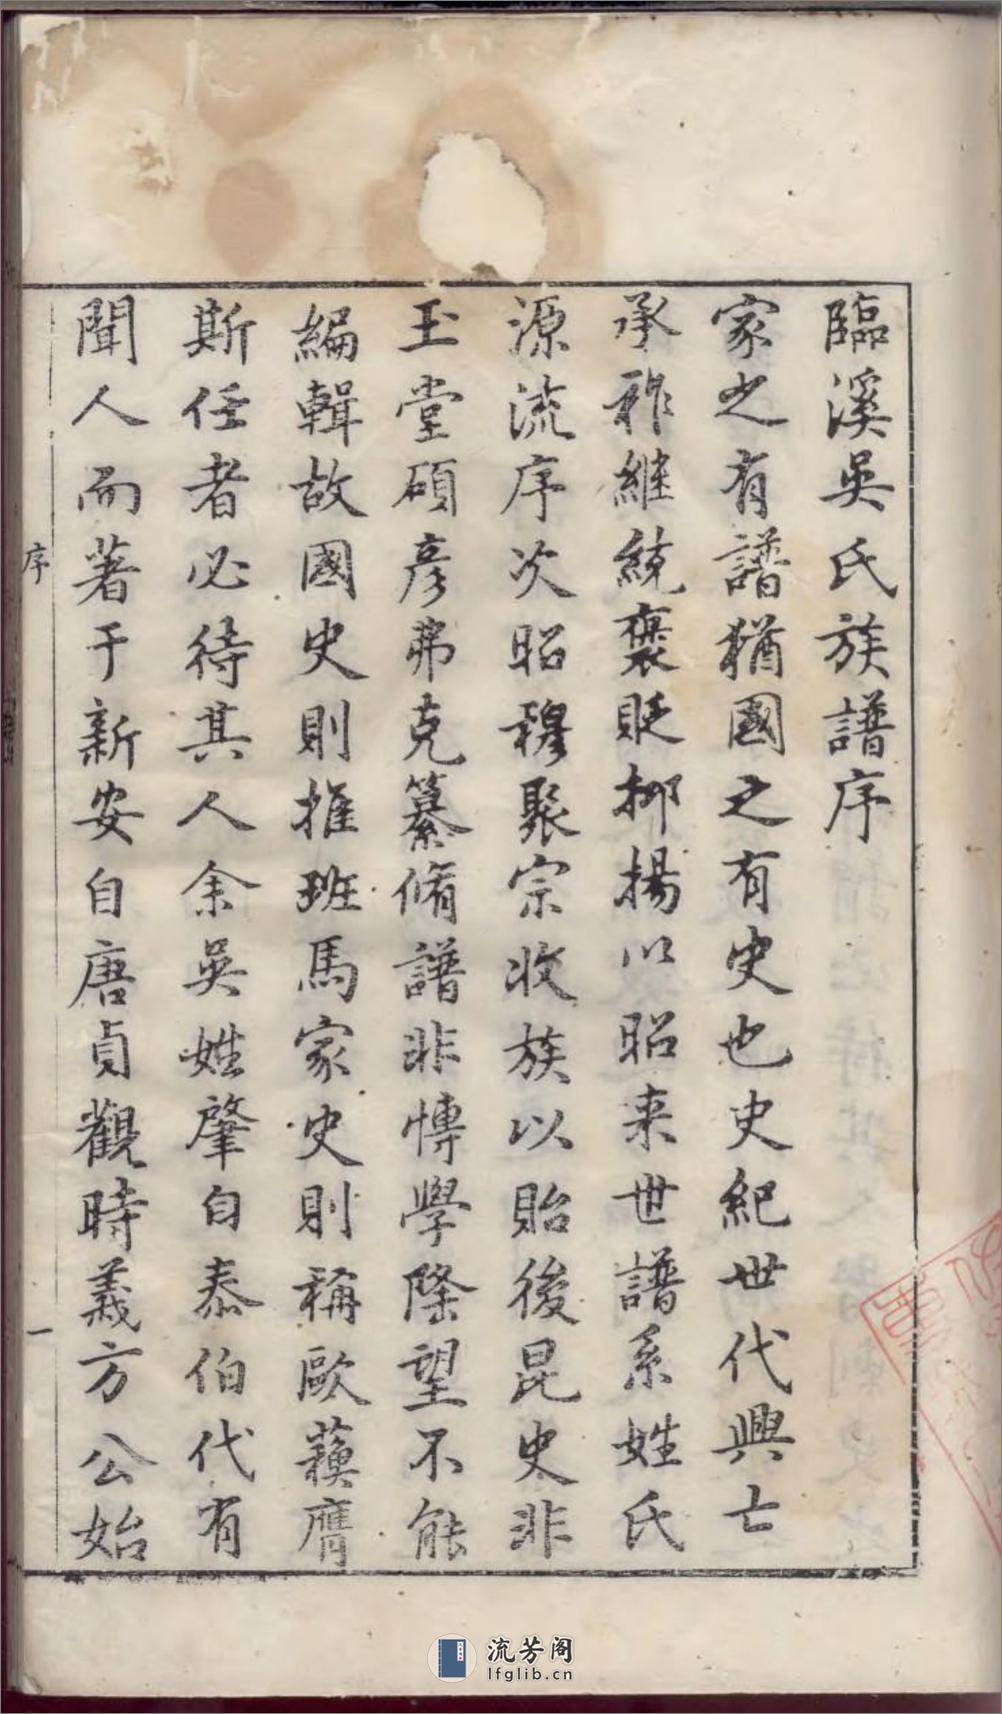 臨溪吳氏族譜序
家之有譜猶國之有史也史紀世代興亡
承祚継統褒貶抑揚以昭来世譜系姓氏
源流序次昭穆聚宗收族以貽後昆史非
玉堂碩彦弗克纂脩譜非博學隆望不能
編輯故國史則推班馬家史則稱歐蘓膺
斯任者必待其人余吳姓肇自泰伯代有
聞人而著于新安自唐貞觀時義方公始
序
一
流芳阁
lfglib.cn